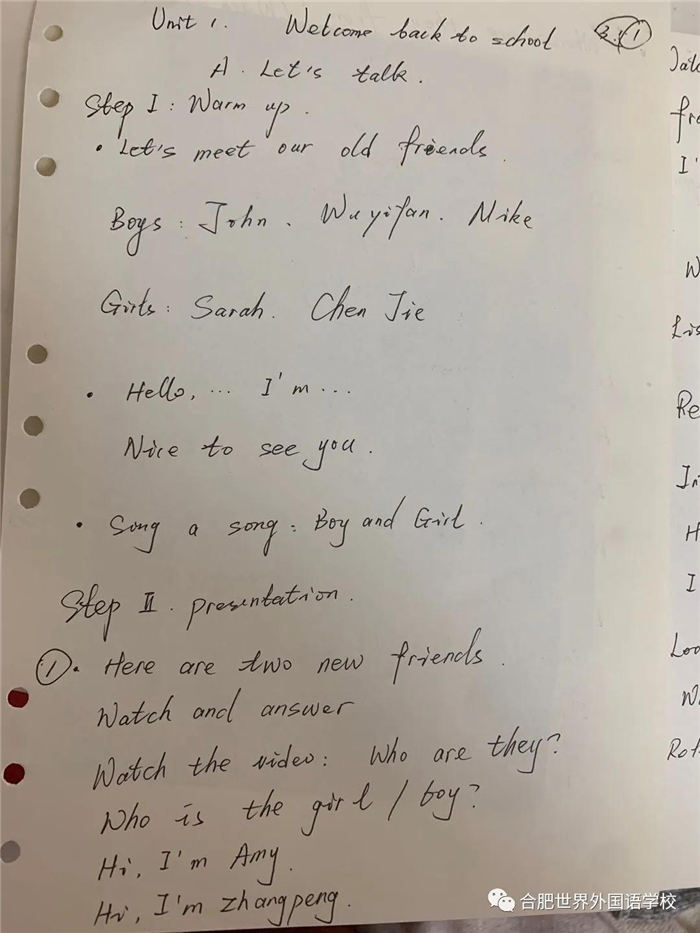 Unit 1. Welcome back to school
A. Let's talk.
Step I: Warm up.
• Let's meet our old friends.
Boys: John. Wu yifan. Mike
Girls: Sarah. Chen Jie
• Hello, ... I'm ...
Nice to see you.
• Song a song: Boy and Girl.
Step II. presentation.
①• Here are two new friends.
Watch and answer
Watch the video: Who are they?
Who is the girl / boy?
Hi, I'm Amy.
Hi, I'm zhangpeng.
合肥世界外国语学校